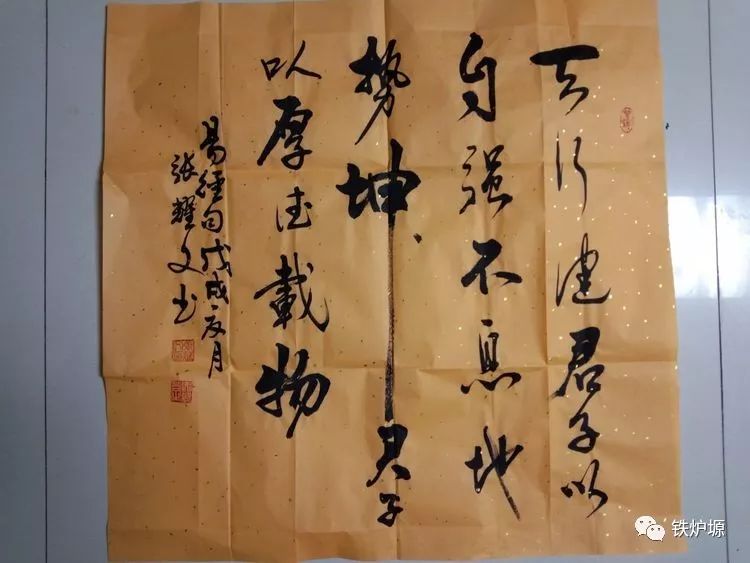 天行健君子以
自强不息地
势坤君子
以厚德载物
易经句戊戌夏月
张耀文书
铁炉塬